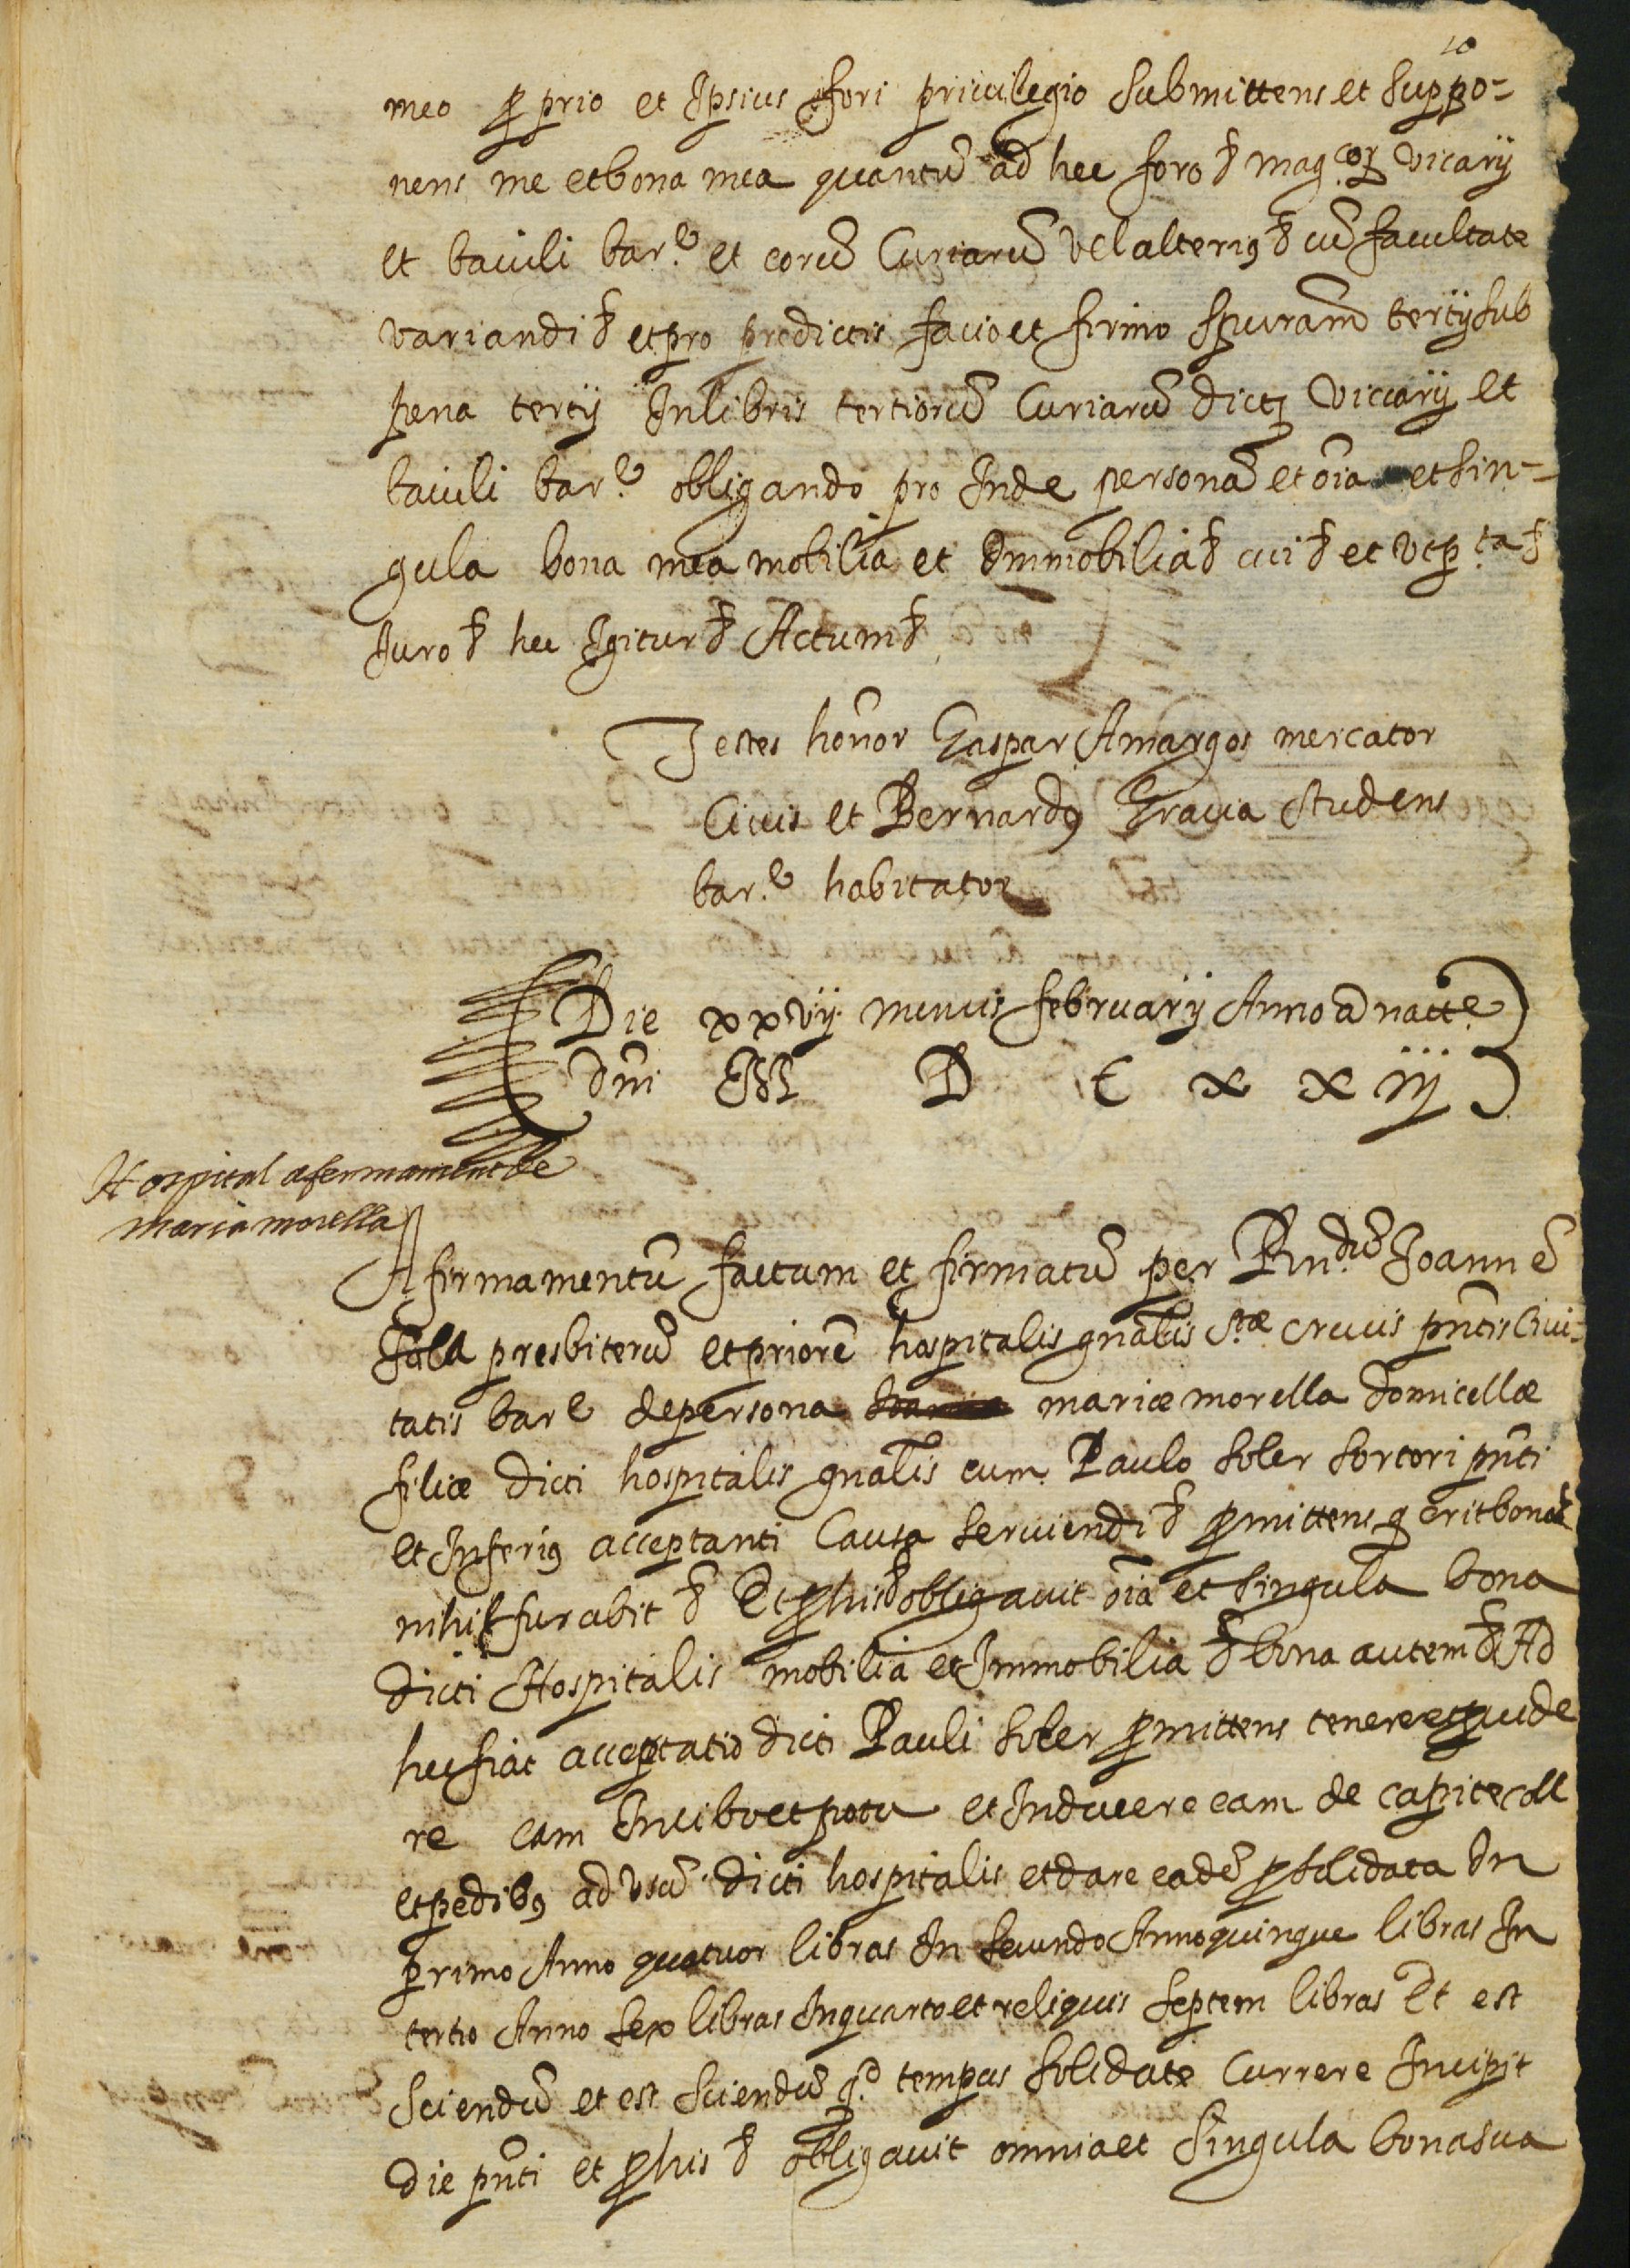 10
meo pprio et Ipsius fori priuilegio submittens et suppo-
nens me et bona mea quantũ ad hec foro & mag.cor vicarij
et baiuli bar.e et eorũ Curiarũ vel alterius & cũ facultate
variandi & et pro predictis facio et firmo scpturam tertij sub
pena tertij In libris tertiorũ Curiarũ dictor Viccarij et
baiuli bar.e obligando pro Inde personã et oĩa et sin-
gula bona mea mobilia et Immobilia & cui & et vt p.ta &
Iuro & hec Igitur & Actum &
Testes honor Gaspar Amargos mercator
Ciuis et Bernardus Gracia studens
bar.e habitator
Die xxvij mencis februarij Anno a natte
dñi M D C x x iij
Hospital afermament de
maria morella
Afirmamentũ factum et firmatũ per Rn.dũ Joannẽ
Sala presbiterũ et priorẽ hospitalis gñalis s.tæ crucis pñtis ciui-
tatis bar.e de persona mariæ morella domicellæ
filiæ dicti hospitalis gñalis cum Paulo soler sortori pñti
et Inferius acceptanti Causa seruiendi & pmittens q erit bona &
nihil furabit & Et p his & obligauit oĩa et singula bona
dicti Hospitalis mobilia et Immobilia & bona autem & Ad
hec fiat acceptatio dicti Pauli soler pmittens tenere et puide
re eam In cibo et potu et Inducere eam de capite
et pedibus ad vsũ dicti hospitalis et dare eadẽ p solidata In
primo Anno quatuor libras In secundo Anno quinque libras In
tertio Anno sex libras In quarto et reliquis septem libras Et est
sciendũ et est sciendũ q.d tempus solidate Currere Incipit
die pñti et p his & obligauit omnia et singula bona sua